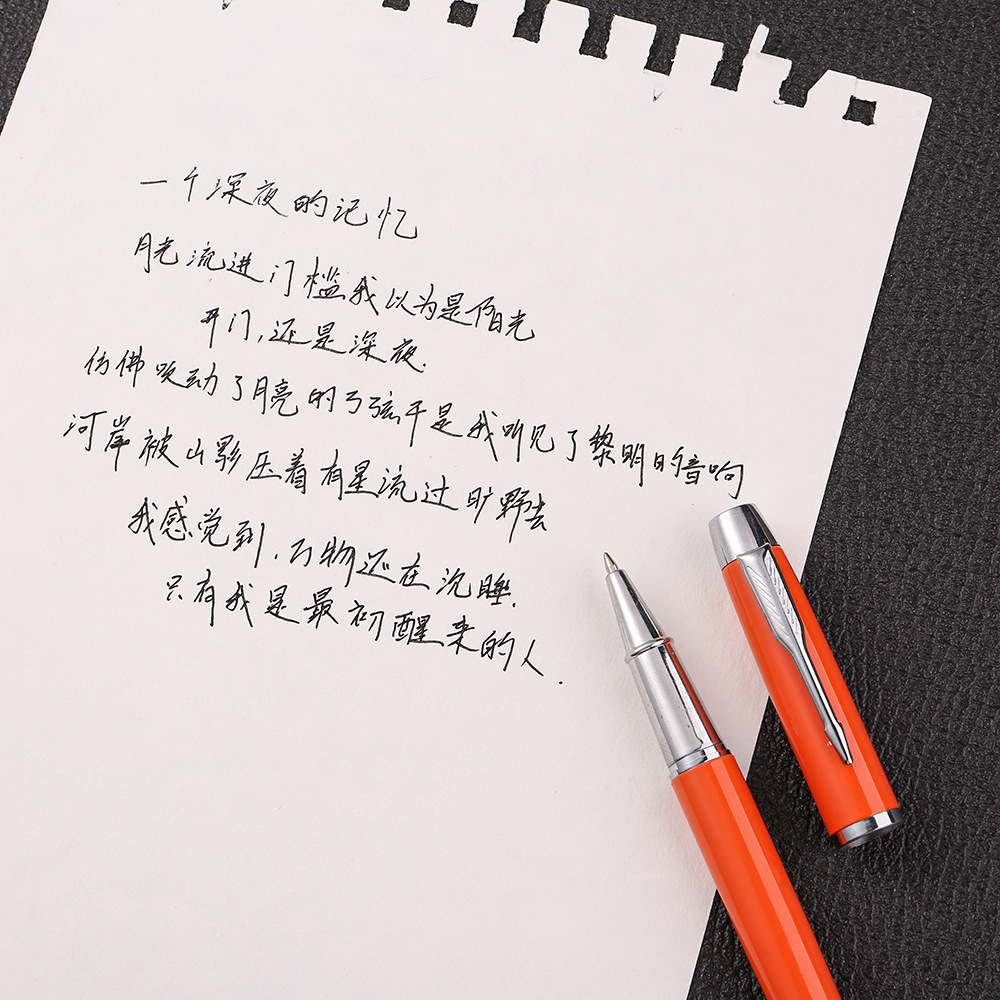 一个深夜的记忆
月光流进门槛我以为是阳光
开门,还是深夜.
仿佛吹动了月亮的弓弦于是我听见了黎明的音响
河岸被山影压着有星流过旷野去
我感觉到,万物还在沉睡.
只有我是最初醒来的人.